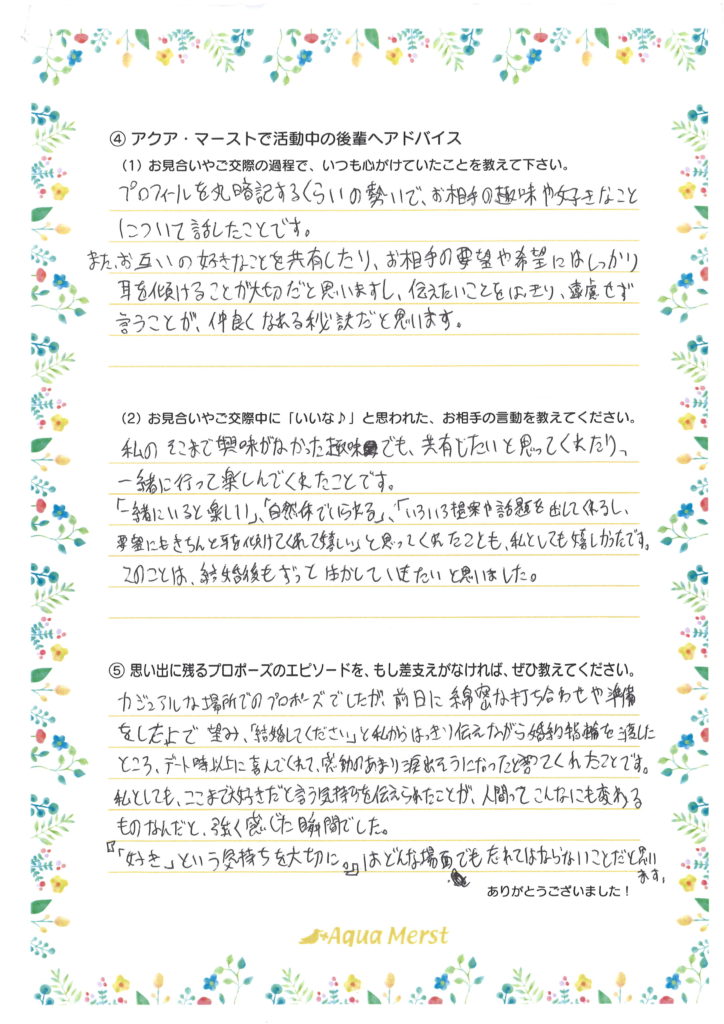 ④ アクア・マーストで活動中の後輩へアドバイス
（1）お見合いやご交際の過程で、いつも心がけていたことを教えて下さい。
プロフィールを丸暗記するくらいの勢いで、お相手の趣味や好きなこと
について話したことです。
また、お互いの好きなことを共有したり、お相手の要望や希望にはしっかり
耳を傾けることが大切だと思いますし、伝えたいことをはっきり、遠慮せず
言うことが、仲良くなれる秘訣だと思います。
（2）お見合いやご交際中に「いいな♪」と思われた、お相手の言動を教えてください。
私のそこまで興味がなかった趣味でも、共有したいと思ってくれたり、
一緒に行って楽しんでくれたことです。
「一緒にいると楽しい」、「自然体でいられる」、「いろいろ提案や話題を出してくれるし、
要望にもきちんと耳を傾けてくれて嬉しい」と思ってくれたことも、私としても嬉しかったです。
このことは、結婚後もずっと活かしていきたいと思いました。
⑤ 思い出に残るプロポーズのエピソードを、もし差支えがなければ、ぜひ教えてください。
カジュアルな場所でのプロポーズでしたが、前日に綿密な打ち合わせや準備
をした上で望み、「結婚してください」と私からはっきり伝えながら婚約指輪を渡した
ところ、デート時以上に喜んでくれて、感動のあまり涙出そうになったと答てくれたことです。
私としても、ここまで大好きだと言う気持ちを伝えられたことが、人間ってこんなにも変わる
ものなんだと、強く感じた瞬間でした。
『「好き」という気持ちを大切に。』はどんな場面でも忘れてはならないことだと思い
ます。
ありがとうございました！
Aqua Merst